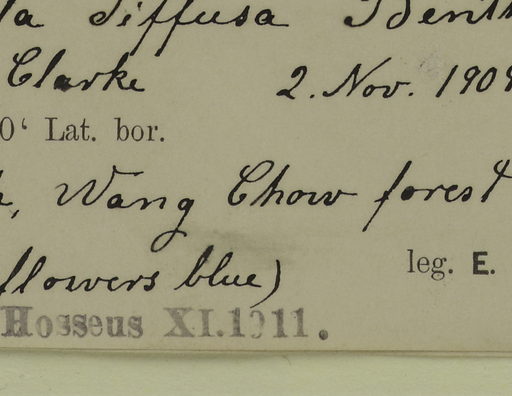 la diffusa Benth
Clarke 2. Nov. 190
0‘ Lat. bor.
Wang Chow forest
flowers blue)
leg. E.
Hosseus XI.1911.